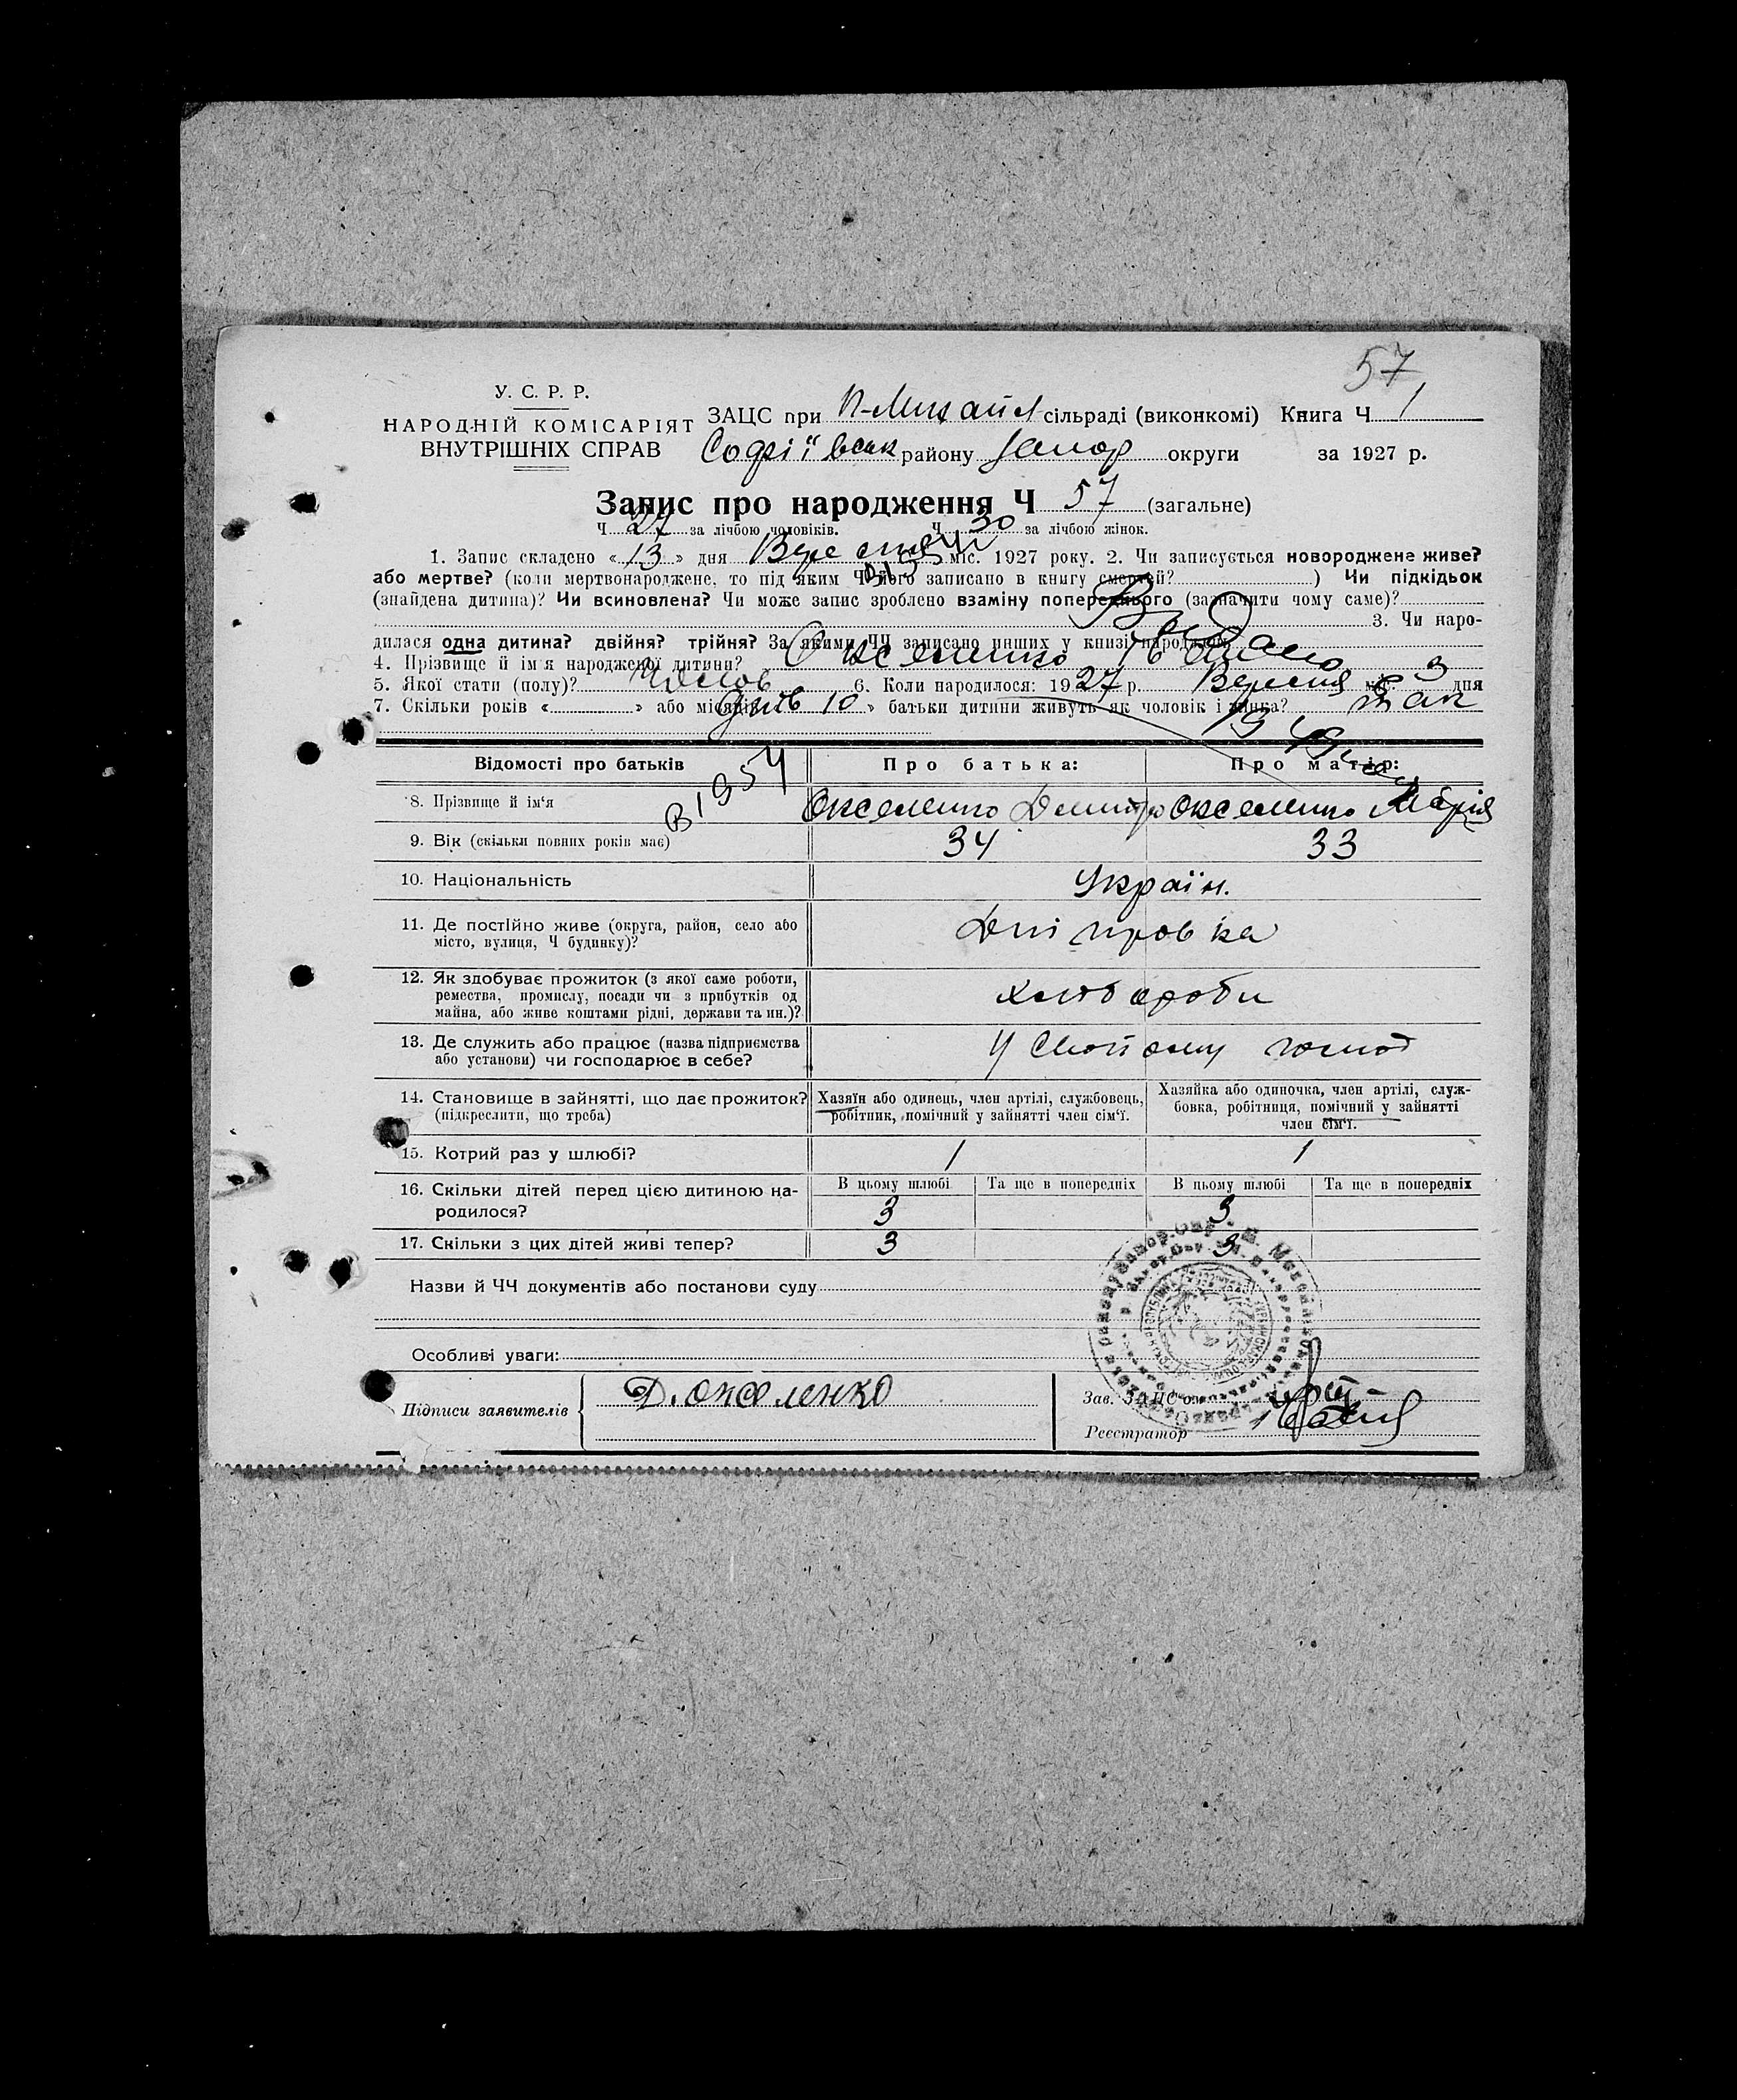 57
У. С. Р. Р.
НАРОДНІЙ КОМІСАРІЯТ
ВНУТРІШНІХ СПРАВ
ЗАЦС при сільраді (виконкомі) Книга Ч 1
Софіївськ району Запор округи за 1927 р.
Запис про народження Ч 57 (загальне)
Ч 27 за лічбою чоловіків. Ч 30 за лічбою жінок.
1. Запис складено «13» дня Вересня міс. 1927 року. 2. Чи записується новороджене живе?
або мертве? (коли мертвонароджене, то під яким Ч його записано в книгу смертей? ) Чи підкідьок
(знайдена дитина)? Чи всиновлена? Чи може запис зроблено взаміну попереднього (зазначити чому саме)?
3. Чи наро-
дилася одна дитина? двійня? трійня? За якими ЧЧ записано инших у книзі народжень
Видано
4. Прізвище й ім'я народженої дитини? Окселенко
5. Якої стати (полу)? Чолов 6. Коли народилося: 1927 р. Вересня міс. 3 дня
7. Скільки років « » або місяців днів 10 » батьки дитини живуть як чоловік і жінка? так
Відомості про батьків Про батька: Про матір:
В 1954
8. Прізвище й ім'я Окселенко Дмитро Окселенко Марія
9. Вік (скільки повних років має) 34 33
10. Національність Україн.
11. Де постійно живе (округа, район, село або
місто, вулиця, Ч будинку)? Дніпровка
12. Як здобуває прожиток (з якої саме роботи,
ремества, промислу, посади чи з прибутків од
майна, або живе коштами рідні, держави та ин.)? хлібороби
13. Де служить або працює (назва підприємства
або установи) чи господарює в себе? У свойому госпот
14. Становище в зайнятті, що дає прожиток?
(підкреслити, що треба)
Хазяїн або одинець, член артілі, службовець,
робітник, помічний у зайнятті член сім'ї.
Хазяйка або одиночка, член артілі, служ-
бовка, робітниця, помічний у зайнятті
член сім'ї.
15. Котрий раз у шлюбі? 1 1
16. Скільки дітей перед цією дитиною на-
родилося?
В цьому шлюбі Та ще в попередніх В цьому шлюбі Та ще в попередніх
3 3
17. Скільки з цих дітей живі тепер? 3 3
Назви й ЧЧ документів або постанови суду
Особливі уваги:
Підписи заявителів Д. Окселенко
Зав. ЗАЦС'ом
Реєстратор